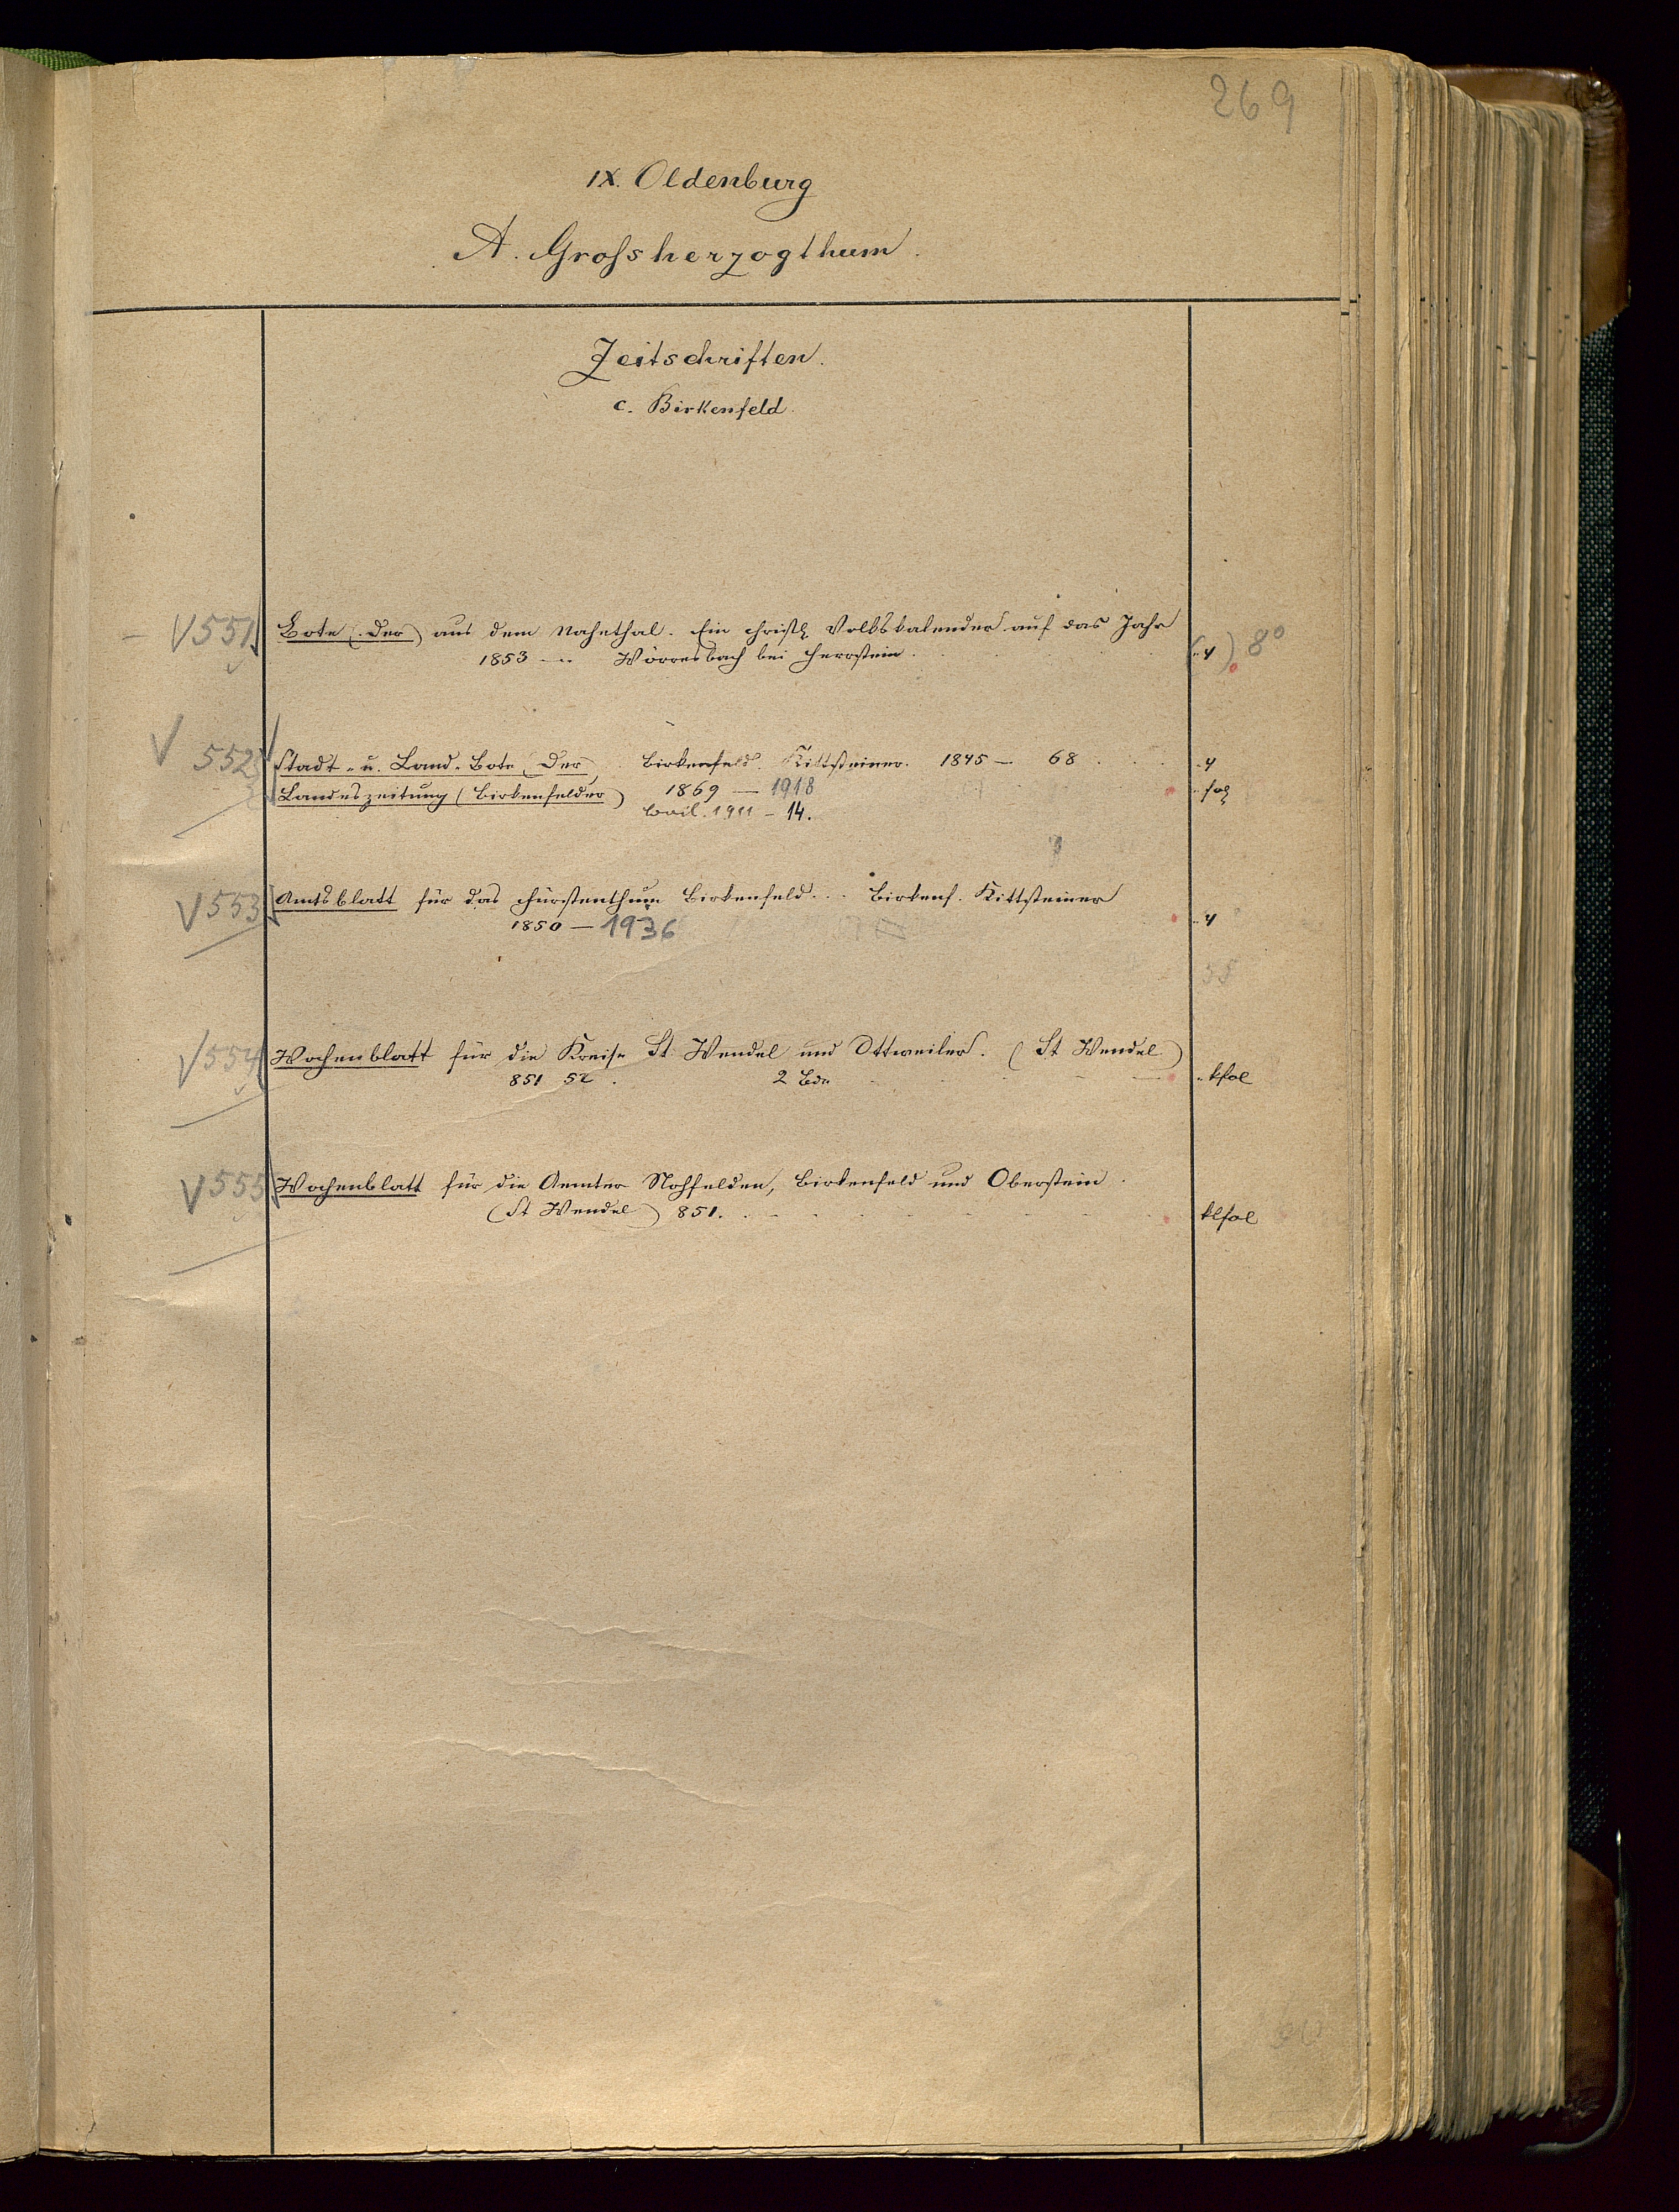 269
IX. Oldenburg
A. Grossherzogthum.
Zeitschriften.
c. Birkenfeld.
V 551 Bote (Der) aus dem Nahethal. Ein christl. Volkskalender auf das Jahr
1853 – Wörresbach bei Herrstein. (4) 8°
V 552 Stadt- u. Land-Bote (Der) Birkenfeld. Kittsteiner. 1845 – 68 4
Landeszeitung (Birkenfelder) 1869 – 1918 fol
1911 – 14.
V 553 Amtsblatt für das Fürstenthum Birkenfeld... Birkenf. Kittsteiner
1850 – 1936 4
V 554 Wochenblatt für die Kreise St. Wendel und Ottweiler. (St Wendel)
851 52. 2 Bde kfol
V 555 Wochenblatt für die Aemter Nohfelden, Birkenfeld und Oberstein.
(St Wendel) 851. klfol